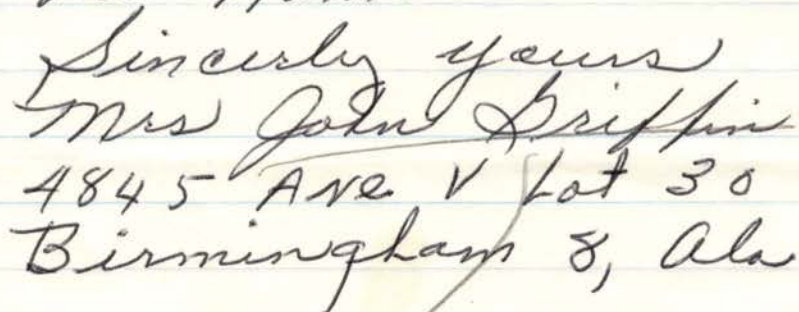 Sincerly yours
Mrs John Griffin
4845 Ave V Lot 30
Birmingham 8, Ala